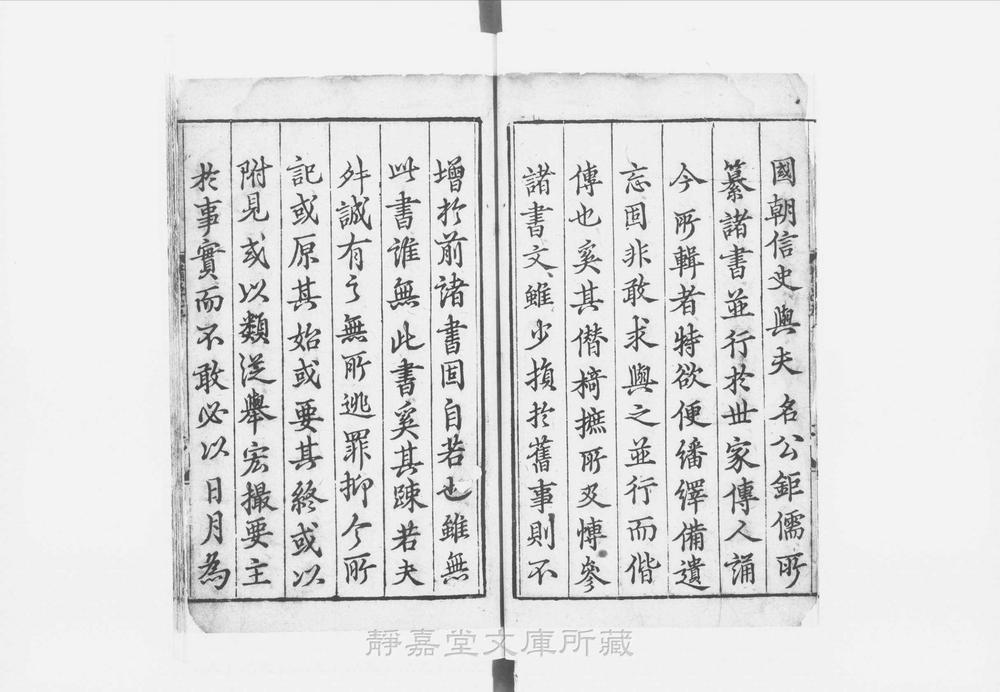 國朝信史與夫名公鉅儒所
纂諸書並行於世家傳人誦
今所輯者特欲便繙繹備遺
忘固非敢求與之並行而偕
傳也奚其僣掎摭所及慱參
諸書文雖少損於舊事則不
增於前諸書固自若也雖無
此書誰無此書奚其踈若夫
舛誠有之無所逃罪抑今所
記或原其始或要其終或以
附見或以類從舉宏撮要主
於事實而不敢必以日月為
靜嘉堂文庫所藏